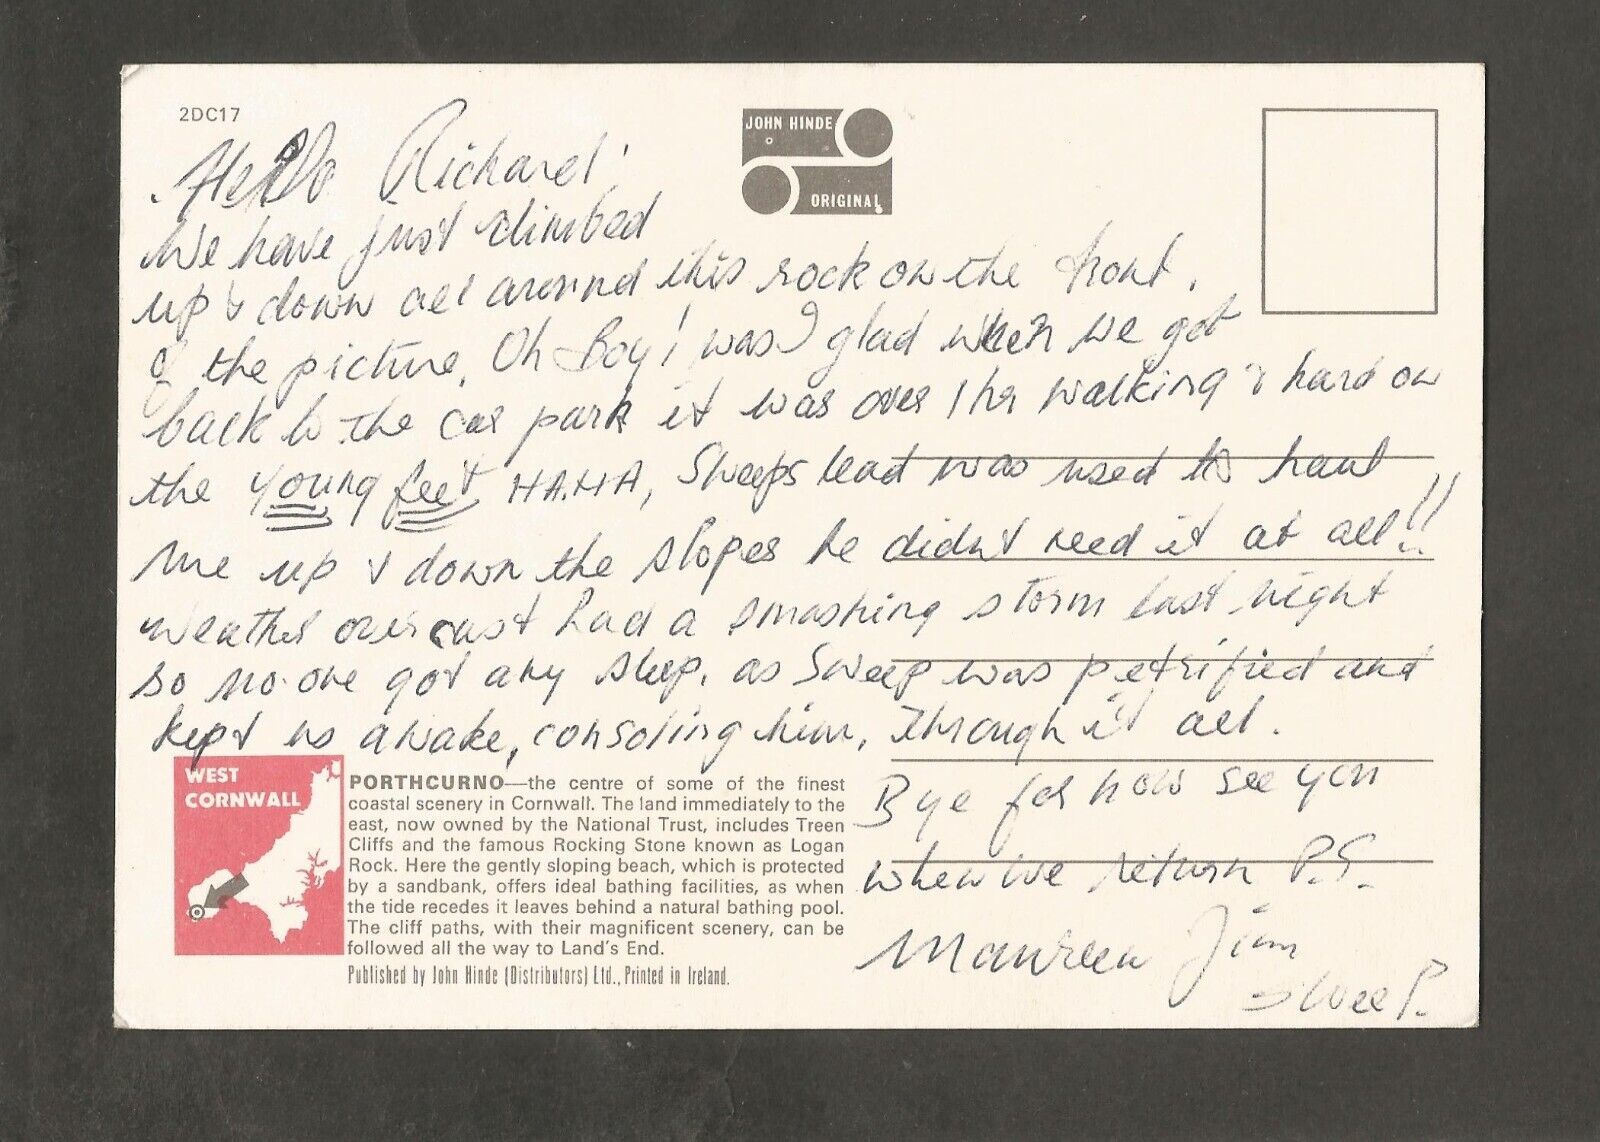 2DC17
JOHN HINDE
ORIGINAL
Hello Richard!
We have just climbed
up & down all around this rock on the front.
of the picture. Oh Boy! was I glad when we got
back to the car park it was over 1 hr walking & hard on
the young feet HA.HA, Sweeps lead was used to haul
me up & down the slopes he didnt need it at all!!
Weather overcast had a smashing storm last night
so no.one got any sleep. as Sweep was petrified and
kept us awake, consoling him, through it all.
Bye for now see you
when we return P.S.
Maureen Jim
Sweep.
WEST
CORNWALL
PORTHCURNO—the centre of some of the finest
coastal scenery in Cornwall. The land immediately to the
east, now owned by the National Trust, includes Treen
Cliffs and the famous Rocking Stone known as Logan
Rock. Here the gently sloping beach, which is protected
by a sandbank, offers ideal bathing facilities, as when
the tide recedes it leaves behind a natural bathing pool.
The cliff paths, with their magnificent scenery, can be
followed all the way to Land's End.
Published by John Hinde (Distributors) Ltd., Printed in Ireland.